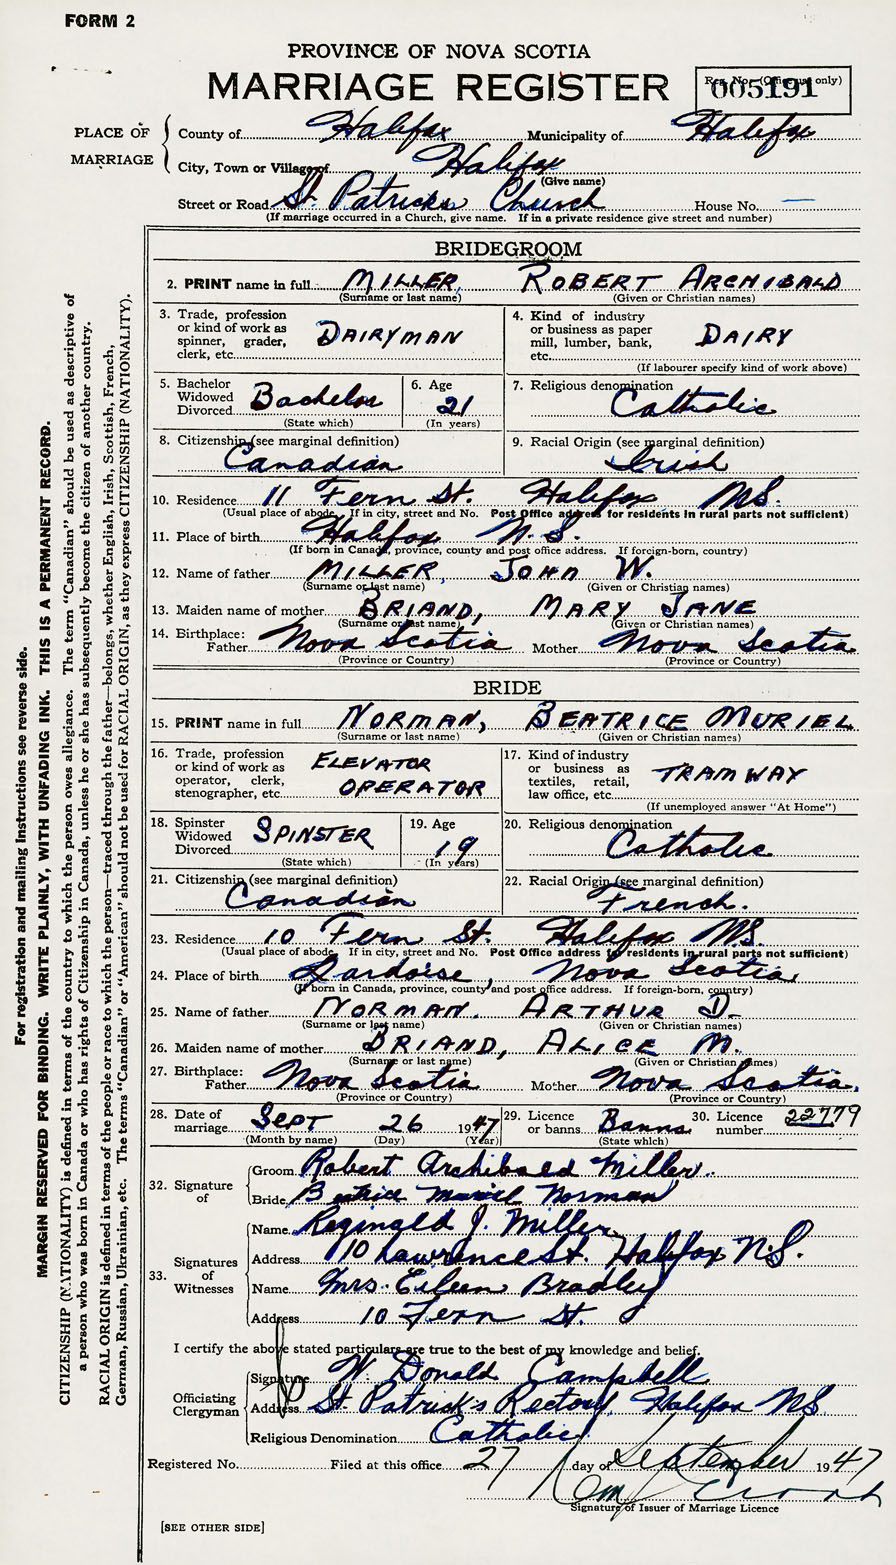 FORM 2
PROVINCE OF NOVA SCOTIA
MARRIAGE REGISTER
Reg. No. (Office use only)
005191
PLACE OF MARRIAGE
County of Halifax Municipality of Halifax
City, Town or Village of Halifax
(Give name)
Street or Road St. Patricks Church House No. —
(If marriage occurred in a Church, give name. If in a private residence give street and number)
BRIDEGROOM
2. PRINT name in full MILLER, ROBERT ARCHIBALD
(Surname or last name) (Given or Christian names)
3. Trade, profession or kind of work as spinner, grader, clerk, etc. DAIRYMAN
4. Kind of industry or business as paper mill, lumber, bank, etc. DAIRY
(If labourer specify kind of work above)
5. Bachelor Widowed Divorced Bachelor
(State which)
6. Age 21
(In years)
7. Religious denomination Catholic
8. Citizenship (see marginal definition) Canadian
9. Racial Origin (see marginal definition) Irish
10. Residence 11 Fern St. Halifax N.S.
(Usual place of abode. If in city, street and No. Post Office address for residents in rural parts not sufficient)
11. Place of birth Halifax N.S.
(If born in Canada, province, county and post office address. If foreign-born, country)
12. Name of father MILLER, JOHN W.
(Surname or last name) (Given or Christian names)
13. Maiden name of mother BRIAND, MARY JANE
(Surname or last name) (Given or Christian names)
14. Birthplace: Father Nova Scotia Mother Nova Scotia
(Province or Country) (Province or Country)
BRIDE
15. PRINT name in full NORMAN, BEATRICE MURIEL
(Surname or last name) (Given or Christian names)
16. Trade, profession or kind of work as operator, clerk, stenographer, etc. ELEVATOR OPERATOR
17. Kind of industry or business as textiles, retail, law office, etc. TRAMWAY
(If unemployed answer "At Home")
18. Spinster Widowed Divorced SPINSTER
(State which)
19. Age 19
(In years)
20. Religious denomination Catholic
21. Citizenship (see marginal definition) Canadian
22. Racial Origin (see marginal definition) French.
23. Residence 10 Fern St. Halifax N.S.
(Usual place of abode. If in city, street and No. Post Office address for residents in rural parts not sufficient)
24. Place of birth Lardoise, Nova Scotia
(If born in Canada, province, county and post office address. If foreign-born, country)
25. Name of father NORMAN, ARTHUR D.
(Surname or last name) (Given or Christian names)
26. Maiden name of mother BRIAND, ALICE M.
(Surname or last name) (Given or Christian names)
27. Birthplace: Father Nova Scotia Mother Nova Scotia.
(Province or Country) (Province or Country)
28. Date of marriage SEPT 26 1947
(Month by name) (Day) (Year)
29. Licence or banns Banns
(State which)
30. Licence number 22779
32. Signature of
Groom Robert Archibald Miller.
Bride Beatrice Muriel Norman
33. Signatures of Witnesses
Name Reginald J. Miller
Address 10 Lawrence St. Halifax N.S.
Name Mrs. Eileen Bradley
Address 10 Fern St.
I certify the above stated particulars are true to the best of my knowledge and belief.
Officiating Clergyman
Signature W. Donald Campbell
Address St Patrick's Rectory, Halifax NS
Religious Denomination Catholic
Registered No. Filed at this office 27 day of September 1947
Signature of Issuer of Marriage Licence
[SEE OTHER SIDE]
For registration and mailing instructions see reverse side.
MARGIN RESERVED FOR BINDING. WRITE PLAINLY, WITH UNFADING INK. THIS IS A PERMANENT RECORD.
CITIZENSHIP (NATIONALITY) is defined in terms of the country to which the person owes allegiance. The term "Canadian" should be used as descriptive of
a person who was born in Canada or who has rights of Citizenship in Canada, unless he or she has subsequently become the citizen of another country.
RACIAL ORIGIN is defined in terms of the people or race to which the person—traced through the father—belongs, whether English, Irish, Scottish, French,
German, Russian, Ukrainian, etc. The terms "Canadian" or "American" should not be used for RACIAL ORIGIN, as they express CITIZENSHIP (NATIONALITY).